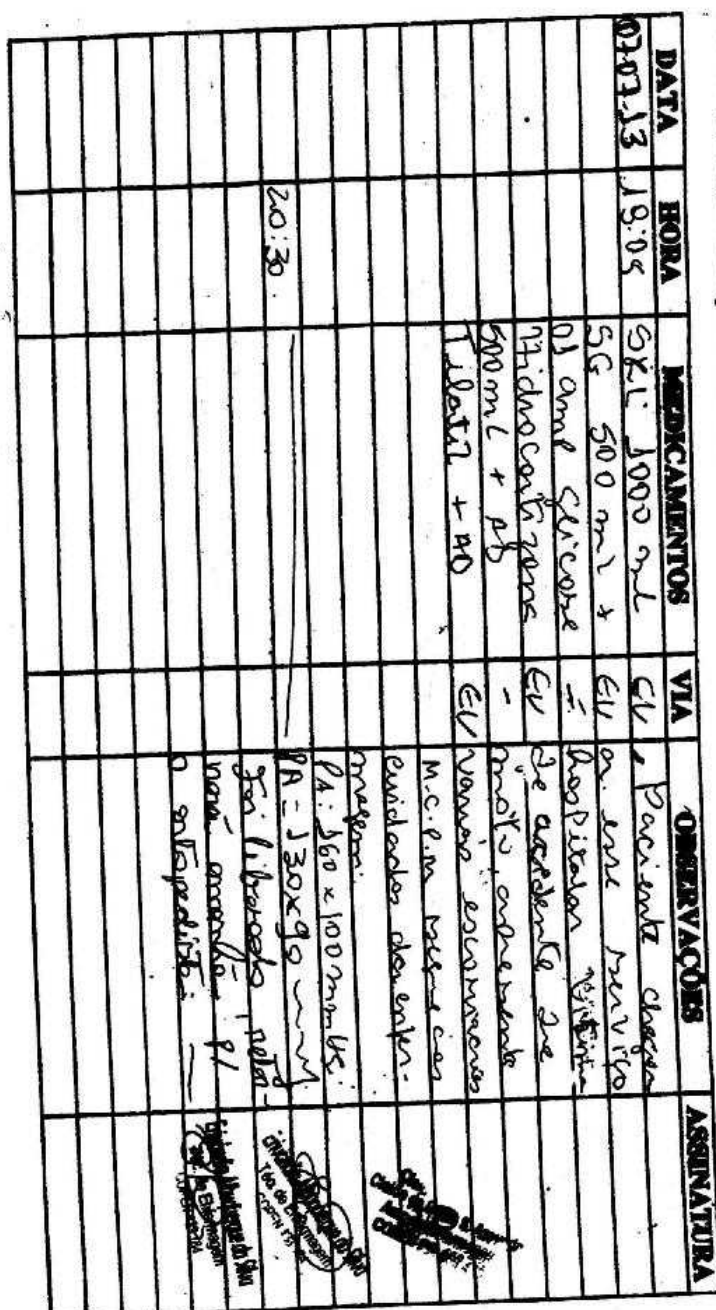 DATA HORA MEDICAMENTOS VIA OBSERVAÇÕES ASSINATURA
07.07.13 18:05 SRL 1000 ml EV Paciente chegou
SG 500 ml + EV a esse serviço
01 amp glicose = hospitalar vítima
Hidrocortizona EV de acidente de
500 ml + AD - moto, apresenta
Tilatil + AD EV varias escoriações
M.C.P.M segue aos
cuidados da enfer-
magem.
PA: 160 x 100 mmHg.
20:30 PA = 130x90
Foi liberado, retor-
nará amanhã p/
o ortopedista.
da Silva
Téc. de Enfermagem
da Silva
de Enfermagem